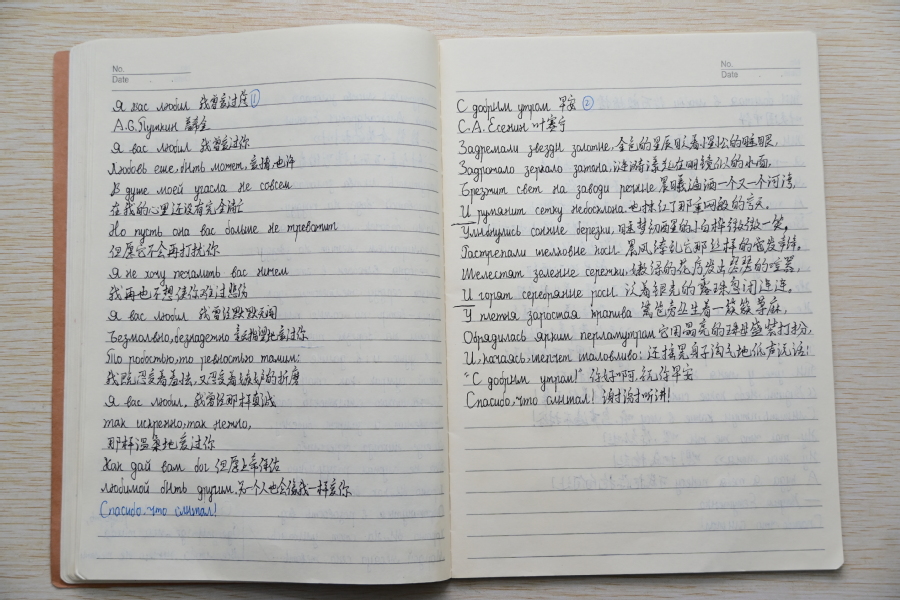 No.
Date
Я вас любил 我曾爱过你 ①
А.С.Пушкин 普希金
Я вас любил 我曾爱过你
Любовь еще, быть может, 爱情,也许
В душе моей угасла не совсем
在我的心里还没有完全消亡
Но пусть она вас больше не тревожит
但愿它不会再打扰你
Я не хочу печалить вас ничем
我再也不想使你难过悲伤
Я вас любил 我曾经默默无闻
Безмолвно, безнадежно 毫无指望地爱过你
То робостью, то ревностью томим:
我既忍受着羞怯,又忍受着嫉妒的折磨
Я вас любил, 我曾经那样真诚
так искренно, так нежно,
那样温柔地爱过你
Как дай вам бог 但愿上帝保佑
любимой быть другим. 另一个人也会像我一样爱你
Спасибо, что слышал!
No.
Date
С добрым утром 早安 ②
С.А.Есенин 叶赛宁
Задремали звезды золотые, 金色的星辰眨着惺忪的睡眼,
Задрожало зеркало затона, 涟漪漾起在明镜似的水面,
Брезжит свет на заводи речные 晨曦遍洒一个又一个河湾,
И румянит сетку небосклона. 也抹红了那网般的云天.
Улыбнулись сонные березки, 睡梦初醒的小白桦微微一笑,
Растрепали шелковые косы. 晨风缭乱它那丝样的密发
Шелестят зеленые сережки, 嫩绿的花序发出瑟瑟的喧嚣,
И горят серебряные росы. 以着银亮的露珠忽闪连连。
У плетня заросшая крапива 篱笆旁丛生着一簇簇荨麻,
Обрядилась ярким перламутром 它用晶亮的珠母盛装打扮,
И, качаясь, шепчет шаловливо: 还摇晃身子淘气地低声说话:
"С добрым утром!" 你好啊,祝你早安
Спасибо, что слышал! 谢谢听讲!